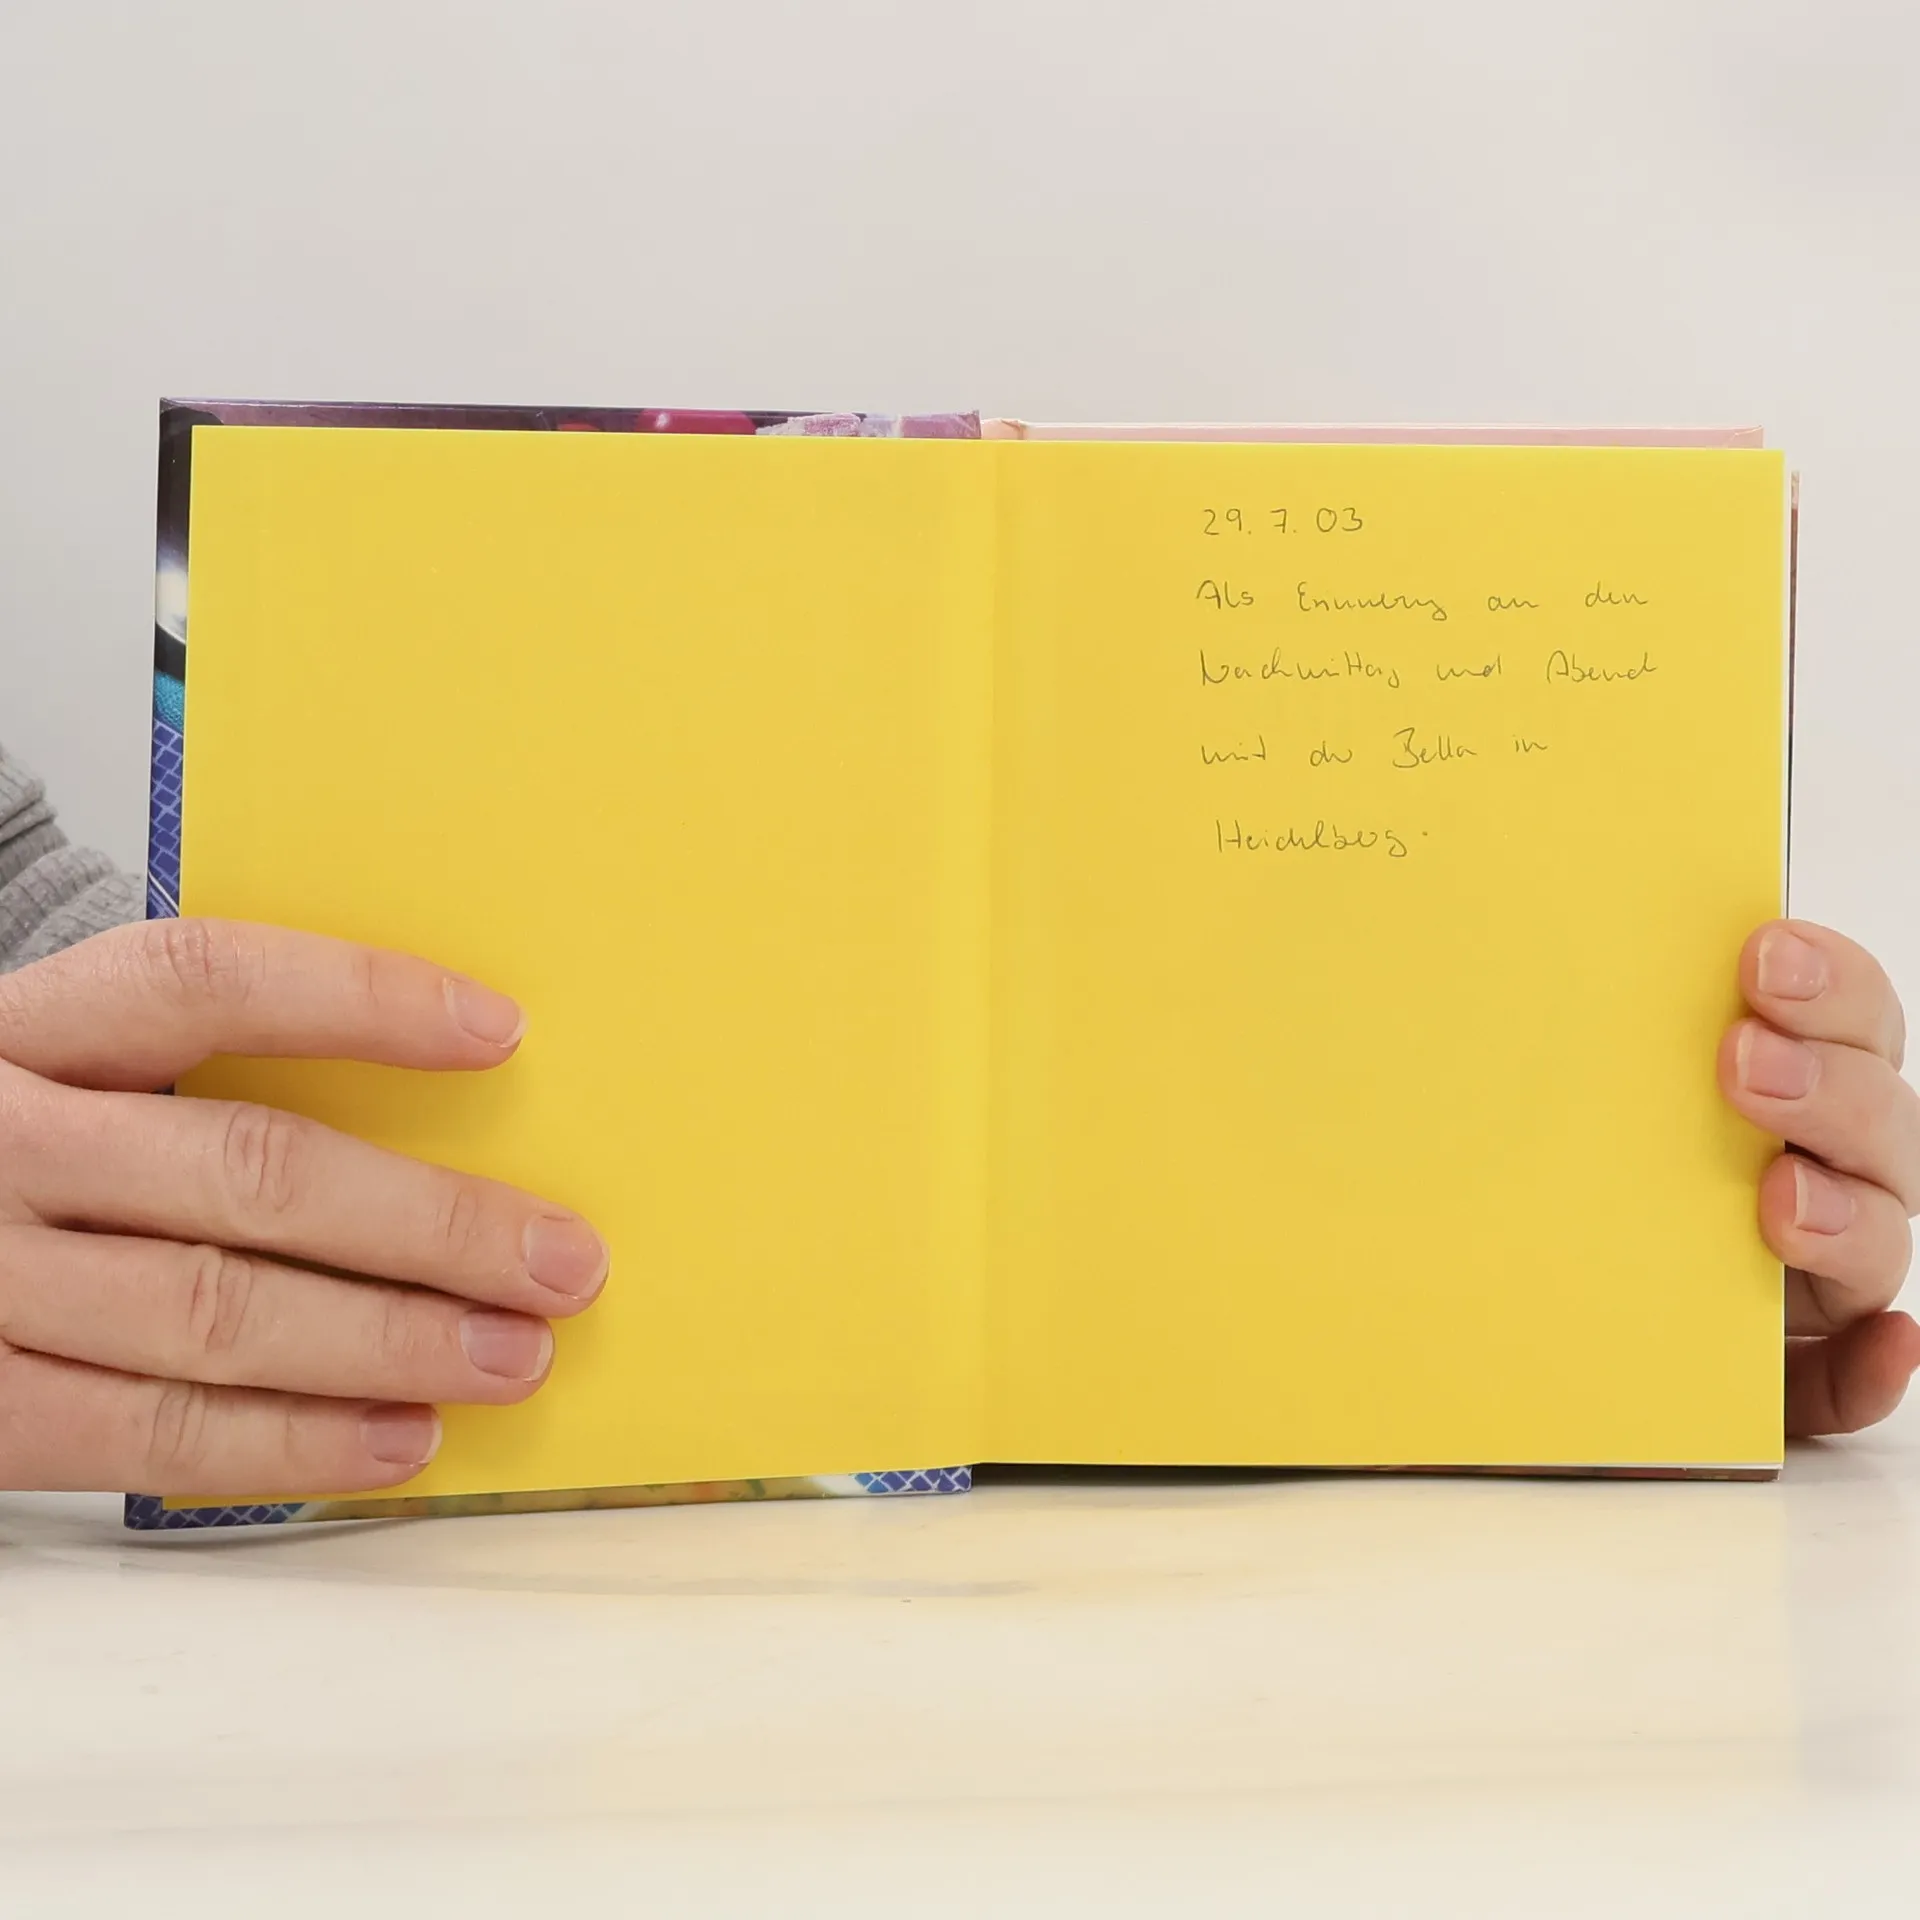 29. 7. 03
Als Erinnerung an den
Nachmittag und Abend
mit der Bella in
Heidelberg.